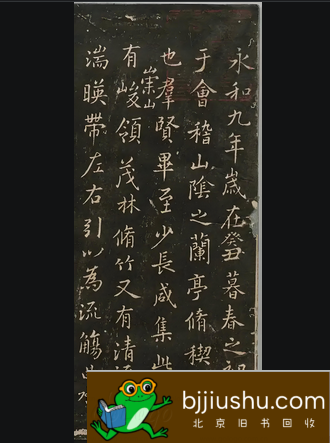 永和九年歲在癸丑暮春之初
于會稽山陰之蘭亭脩稧
也羣賢畢至少長咸集此
有崇山峻領茂林脩竹又有清
湍暎帶左右引以為流觴
bjjiushu.com
北京旧书回收